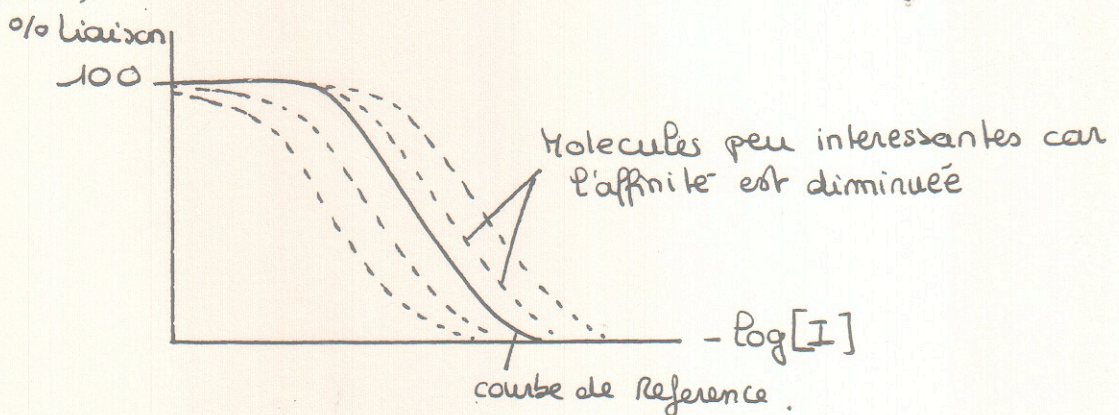 % Liaison
100
Molecules peu interessantes car
l'affinité est diminuée
- log[I]
courbe de Reference.